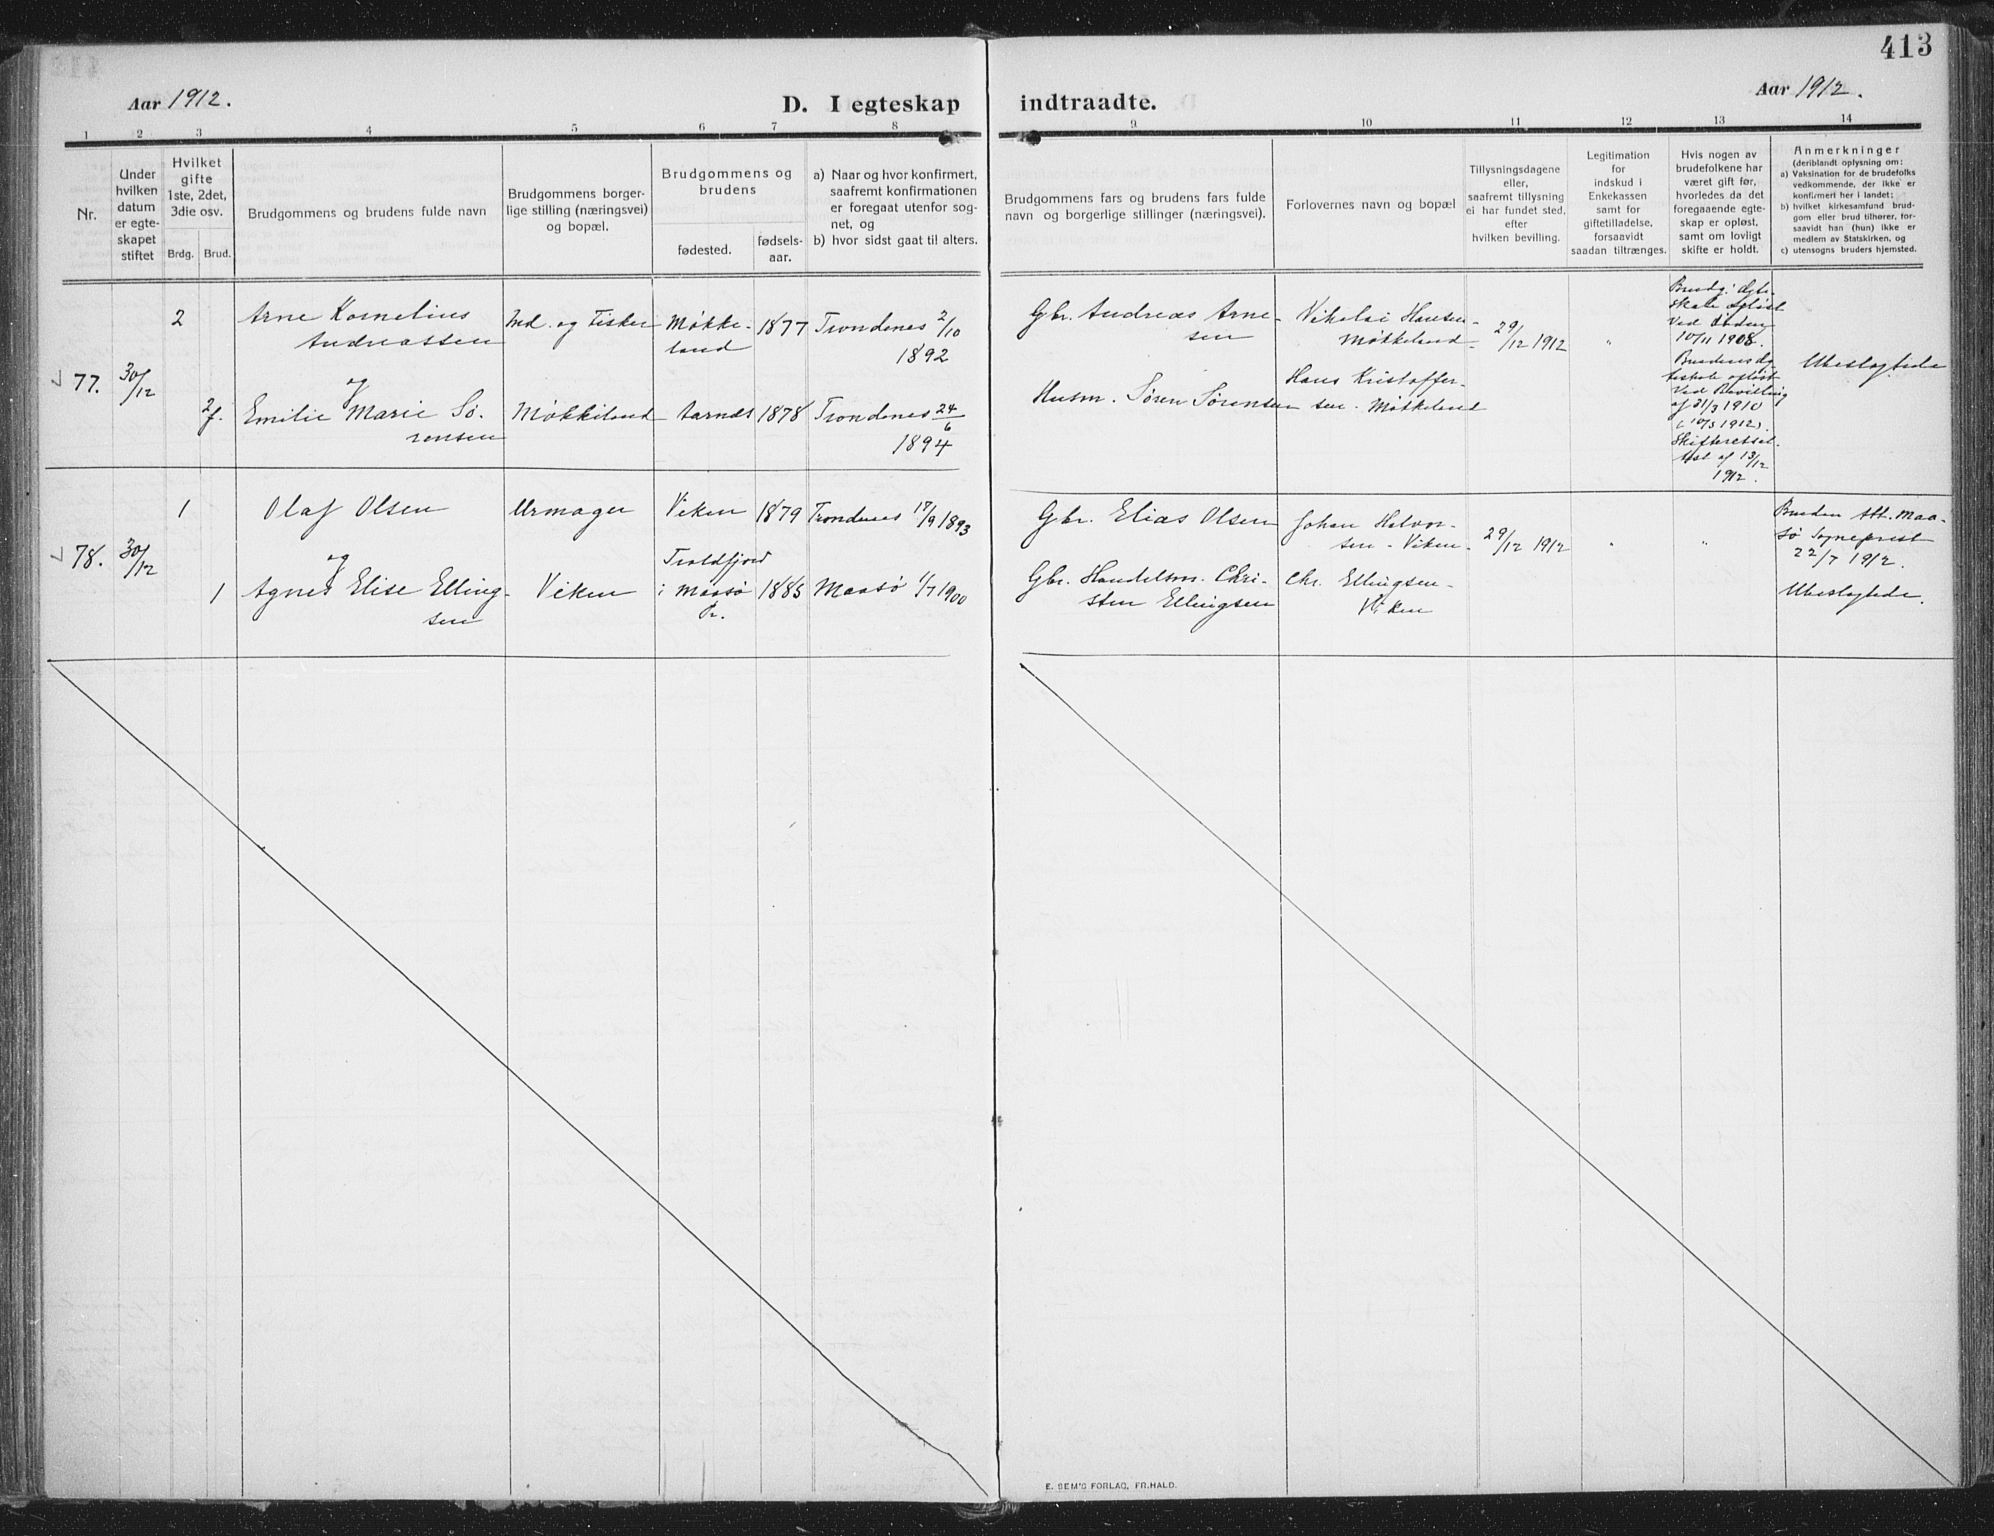 413
Aar 1912.
D. I egteskap indtraadte.
Aar 1912.
1 2 3 4 5 6 7 8 9 10 11 12 13 14
Nr.
Under
hvilken
datum
er egte-
skapet
stiftet
Hvilket
gifte
1ste, 2det,
3die osv.
Brdg. Brud.
Brudgommens og brudens fulde navn
Brudgommens borger-
lige stilling (næringsvei)
og bopæl.
Brudgommens og
brudens
fødested.
fødsels-
aar.
a) Naar og hvor konfirmert,
saafremt konfirmationen
er foregaat utenfor sog-
net, og
b) hvor sidst gaat til alters.
Brudgommens fars og brudens fars fulde
navn og borgerlige stillinger (næringsvei).
Forlovernes navn og bopæl
Tillysningsdagene
eller,
saafremt tillysning
ei har fundet sted,
efter
hvilken bevilling.
Legitimation
for
indskud i
Enkekassen
samt for
giftetilladelse,
forsaavidt
saadan tiltrænges.
Hvis nogen av
brudefolkene har
været gift før,
hvorledes da det
foregaaende egte-
skap er opløst,
samt om lovligt
skifte er holdt.
Anmerkninger
(deriblandt oplysning om:
a) Vaksination for de brudefolks
vedkommende, der ikke er
konfirmert her i landet;
b) hvilket kirkesamfund brud-
gom eller brud tilhører, for-
saavidt han (hun) ikke er
medlem av Statskirken, og
c) utensogns bruders hjemsted.
77.
30/12
2
Arne Kornelius
Andreassen
og
2 f.
Emilie Marie Sø-
rensen
Ind. og Fisker
Møkkeland
Møkke-
land
Aarnes
1877
1878
Trondenes 2/10
1892
Trondenes 24/6
1894
Gbr. Andreas Arne-
sen
Husm. Søren Sørensen
Vikolai Hansen -
Møkkeland -
Hans Kristoffer-
sen. Møkkeland
29/12 1912
"
Brudg: Egte-
skab opløst
ved Døden
10/11 1908.
Brudens
opløst
ved Bevilling
af 31/3 1910
(10/3 1912).
af 13/12
1912.
Ubeslægtede
78.
30/12
1
Olaf Olsen
og
1
Agnes Elise Elling-
sen
Urmager
Viken
Viken
Troldfjord
i Maasø
Pr.
1879
1885
Trondenes 17/9 1893
Maasø 1/7 1900
Gbr. Elias Olsen
Gbr. Handelsm. Chri-
sten Ellingsen
Johan Halvor-
sen - Viken -
Chr. Ellingsen -
Viken
29/12 1912
"
"
Bruden Att. Maa-
sø Sogneprest
22/7 1912.
Ubeslægtede.
E. SEM'S FORLAG, FR.HALD.